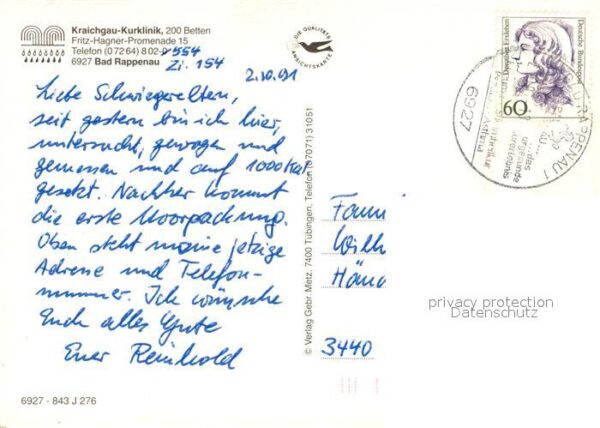 Kraichgau-Kurklinik, 200 Betten
Fritz-Hagner-Promenade 15
Telefon (0 72 64) 8 02-0 554
6927 Bad Rappenau Zi. 154
DIE QUALITÄTS
ANSICHTSKARTE
2.10.91
Liebe Schwiegereltern,
seit gestern bin ich hier,
untersucht, gewogen und
gemessen und auf 1000 Kal
gesetzt. Nachher kommt
die erste Moorpackung.
Oben steht meine jetzige
Adresse und Telefon-
nummer. Ich wünsche
Euch alles Gute
Euer Reinhold
© Verlag Gebr. Metz, 7400 Tübingen, Telefon (0 70 71) 3 10 51
Fami
Wilh
Händ
3440
60
Deutsche Bundespost
6927
RAPPENAU 1
privacy protection
Datenschutz
6927 - 843 J 276